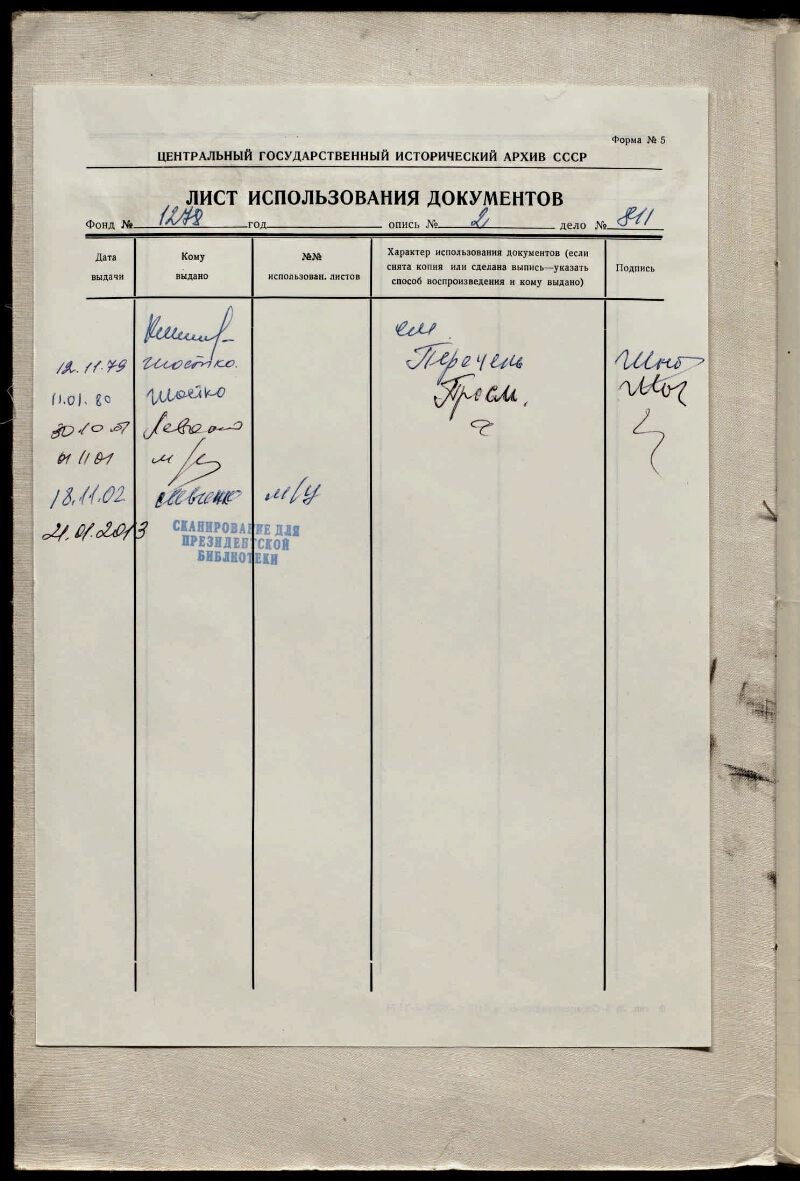 Форма № 5
ЦЕНТРАЛЬНЫЙ ГОСУДАРСТВЕННЫЙ ИСТОРИЧЕСКИЙ АРХИВ СССР
ЛИСТ ИСПОЛЬЗОВАНИЯ ДОКУМЕНТОВ
Фонд № 1278 год опись № 2 дело № 811
Дата выдачи
Кому выдано
№№ использован. листов
Характер использования документов (если снята копия или сделана выпись—указать способ воспроизведения и кому выдано)
Подпись
12.11.79 Перечень
11.01.80 Просм.
30 10 01
01 11 01
18.11.02 м/ц
21.01.2013
СКАНИРОВАНИЕ ДЛЯ
ПРЕЗИДЕНТСКОЙ
БИБЛИОТЕКИ